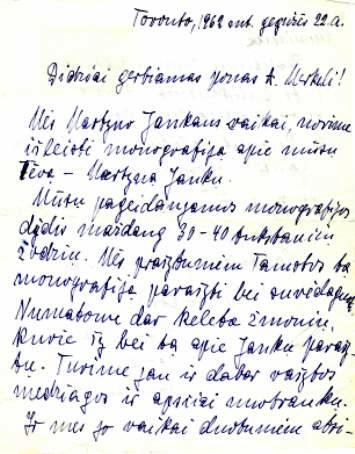 Toronto, 1962 mt. gegužės 22 d.
Didžiai gerbiamas ponas A. Merkeli!
Mės Martyno Jankaus vaikai, norime
išleisti monografiją apie mūsų
Tėvą – Martyną Jankų.
Mūsų pageidaujamos monografijos
dydis maždaug 30-40 tukstančių
žodžių. Mės prašytumėm Tamstos tą
monografiją parašyti bei suredaguoti.
Numatome dar keletą žmonių,
kurie ką bei tą apie Jankų parašy-
tų. Turime jau ir dabar rašytos
medžiagos ir apsčiai nuotraukų.
Ir mes jo vaikai duotumėm